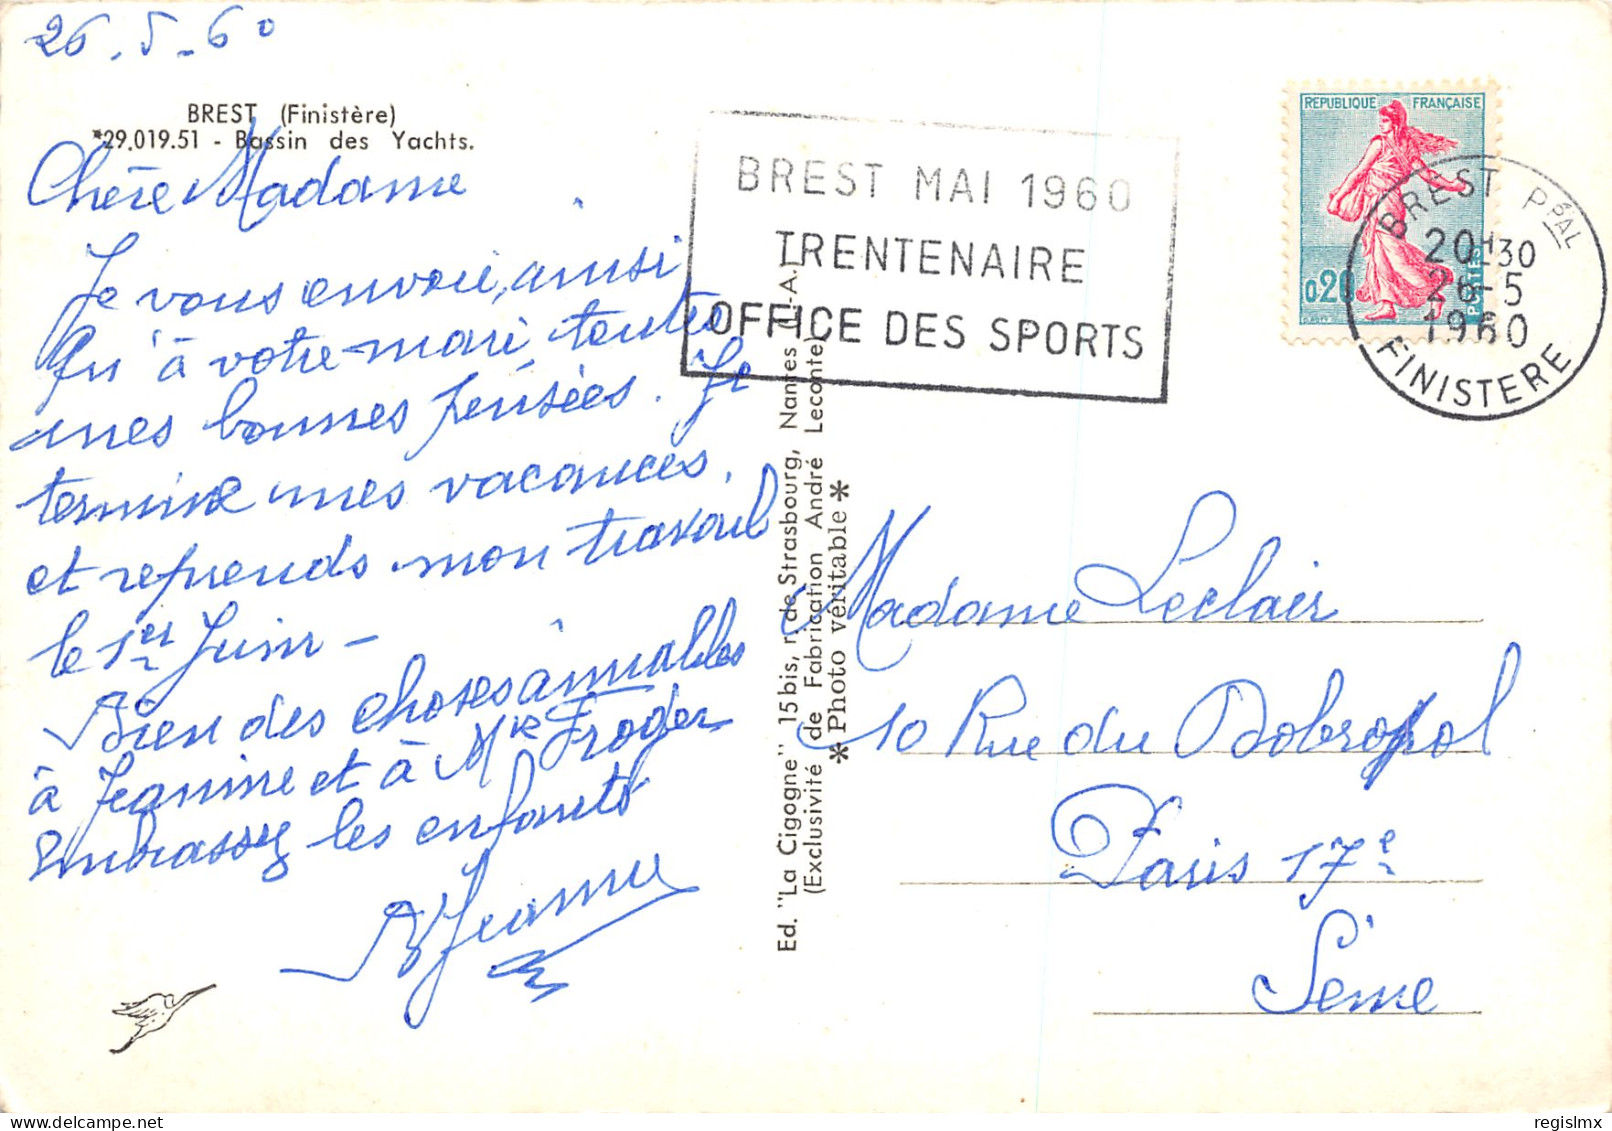 26-5-60
BREST (Finistère)
*29.019.51 - Bassin des Yachts.
Chère Madame
Je vous envoie, ainsi
qu'à votre mari, toutes
mes bonnes pensées. Je
termine mes vacances,
et reprends mon travail
le 1er Juin -
Bien des choses aimables
à Jeanine et à Mr Froger
Embrassez les enfants
Jeanne
Ed. "La Cigogne" 15 bis, r. de Strasbourg, Nantes (L.-A.)
(Exclusivité de Fabrication André Leconte)
*Photo véritable*
BREST MAI 1960
TRENTENAIRE
OFFICE DES SPORTS
REPUBLIQUE FRANÇAISE
0,20
POSTES
BREST PPAL
20H30
26-5
1960
FINISTERE
Madame Leclair
10 Rue du Dobropol
Paris 17e
Seine
regislmx